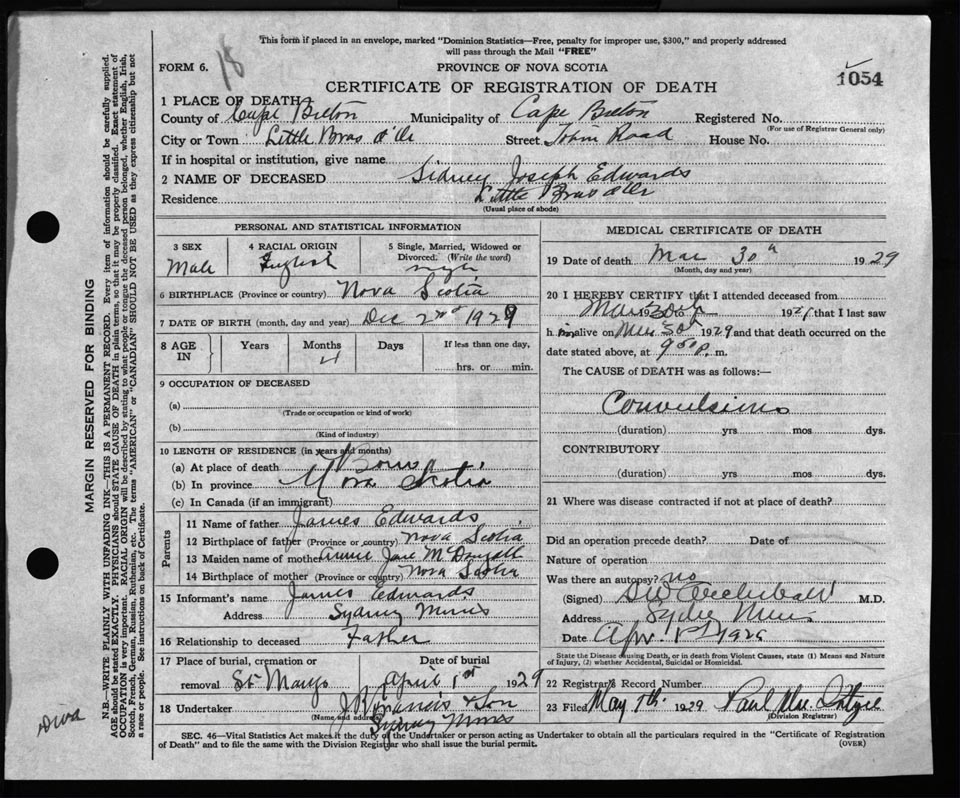 This form if placed in an envelope, marked "Dominion Statistics—Free, penalty for improper use, $300," and properly addressed
will pass through the Mail "FREE"
18
FORM 6.
PROVINCE OF NOVA SCOTIA
1054
CERTIFICATE OF REGISTRATION OF DEATH
1 PLACE OF DEATH
County of Cape Breton Municipality of Cape Breton Registered No.
(For use of Registrar General only)
City or Town Little Bras d'Or Street Tobin Road House No.
If in hospital or institution, give name
2 NAME OF DECEASED Sidney Joseph Edwards
Residence Little Bras d'Or
(Usual place of abode)
PERSONAL AND STATISTICAL INFORMATION
3 SEX 4 RACIAL ORIGIN 5 Single, Married, Widowed or Divorced. (Write the word)
Male English single
6 BIRTHPLACE (Province or country) Nova Scotia
7 DATE OF BIRTH (month, day and year) Dec 2nd 1929
8 AGE IN Years Months Days If less than one day,
4 hrs. or min.
9 OCCUPATION OF DECEASED
(a)
(Trade or occupation or kind of work)
(b)
(Kind of industry)
10 LENGTH OF RESIDENCE (in years and months)
(a) At place of death Born
(b) In province Nova Scotia
(c) In Canada (if an immigrant)
Parents
11 Name of father James Edwards
12 Birthplace of father (Province or country) Nova Scotia
13 Maiden name of mother Annie Jane McDougall
14 Birthplace of mother (Province or country) Nova Scotia
15 Informant's name James Edwards
Address Sydney Mines
16 Relationship to deceased Father
17 Place of burial, cremation or removal St Marys Date of burial April 1st 1929
18 Undertaker J Francis & Son
(Name and address) Sydney Mines
MEDICAL CERTIFICATE OF DEATH
19 Date of death Mar 30th 1929
(Month, day and year)
20 I HEREBY CERTIFY that I attended deceased from
Mar 30th 192 to 192 that I last saw
h im alive on Mar 30 1929 and that death occurred on the
date stated above, at 9 50 p. m.
The CAUSE of DEATH was as follows:—
Convulsions
(duration) yrs mos dys.
CONTRIBUTORY
(duration) yrs mos dys.
21 Where was disease contracted if not at place of death?
Did an operation precede death? Date of
Nature of operation
Was there an autopsy? no
(Signed) Archibald M.D.
Address Sydney Mines
Date Apr 1st 1929
State the Disease causing Death, or in death from Violent Causes, state (1) Means and Nature
of Injury, (2) whether Accidental, Suicidal or Homicidal.
22 Registrar's Record Number
23 Filed May 7th 1929 Paul
(Division Registrar)
SEC. 46—Vital Statistics Act makes it the duty of the Undertaker or person acting as Undertaker to obtain all the particulars required in the "Certificate of Registration
of Death" and to file the same with the Division Registrar who shall issue the burial permit.
(OVER)
MARGIN RESERVED FOR BINDING
N.B.—WRITE PLAINLY WITH UNFADING INK—THIS IS A PERMANENT RECORD. Every item of information should be carefully supplied.
AGE should be stated EXACTLY. PHYSICIANS should STATE CAUSE OF DEATH in plain terms, so that it may be properly classified. Exact statement of
OCCUPATION is very important. RACIAL ORIGIN will be described by stating to what people or tongue the deceased person belonged, whether English, Irish,
Scotch, French, German, Russian, Ruthenian, etc. The terms "AMERICAN" or "CANADIAN" SHOULD NOT BE USED as they express citizenship but not
a race or people. See instructions on back of Certificate.